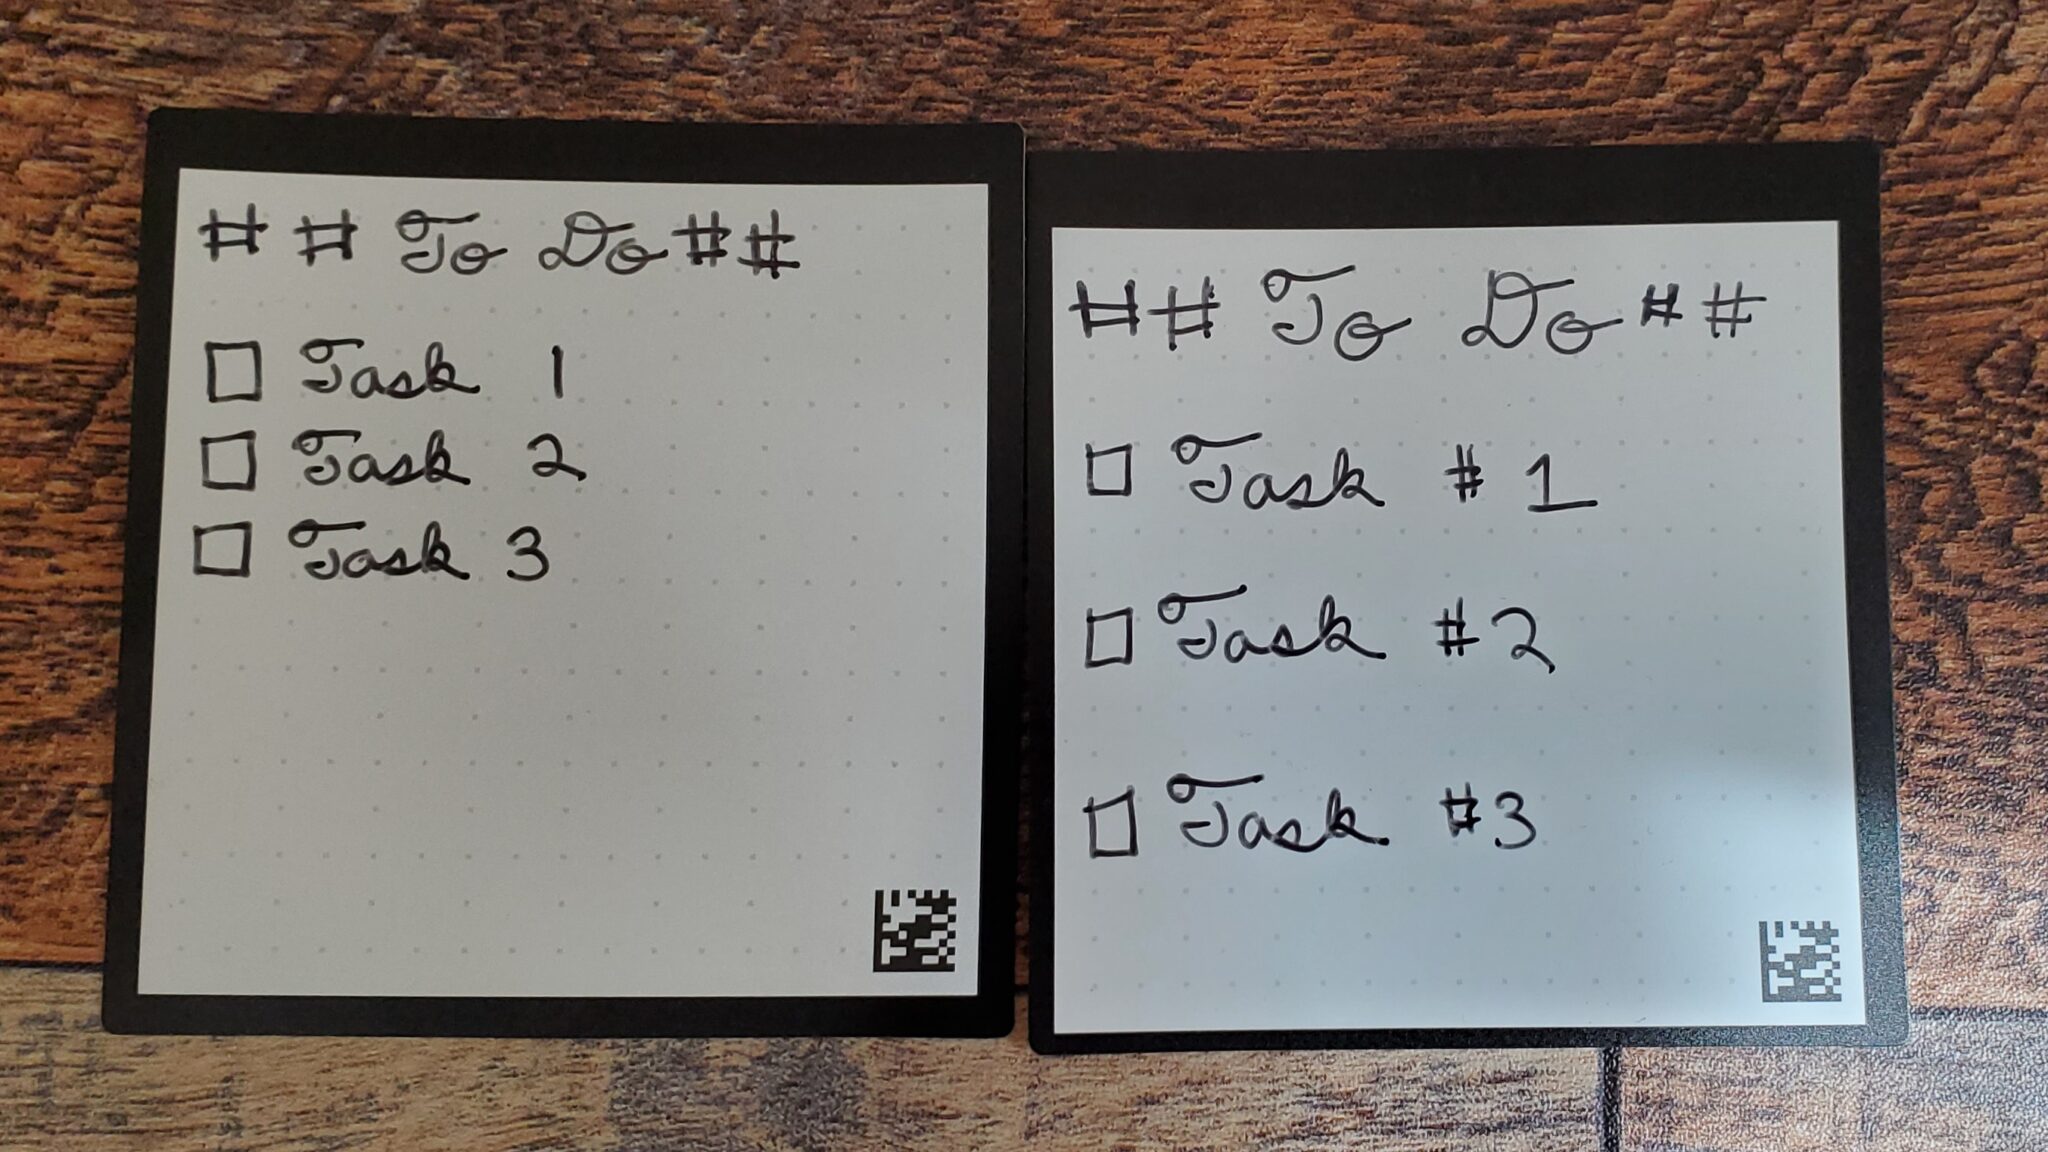 ## To Do ##
Task 1
Task 2
Task 3
## To Do ##
Task # 1
Task #2
Task #3